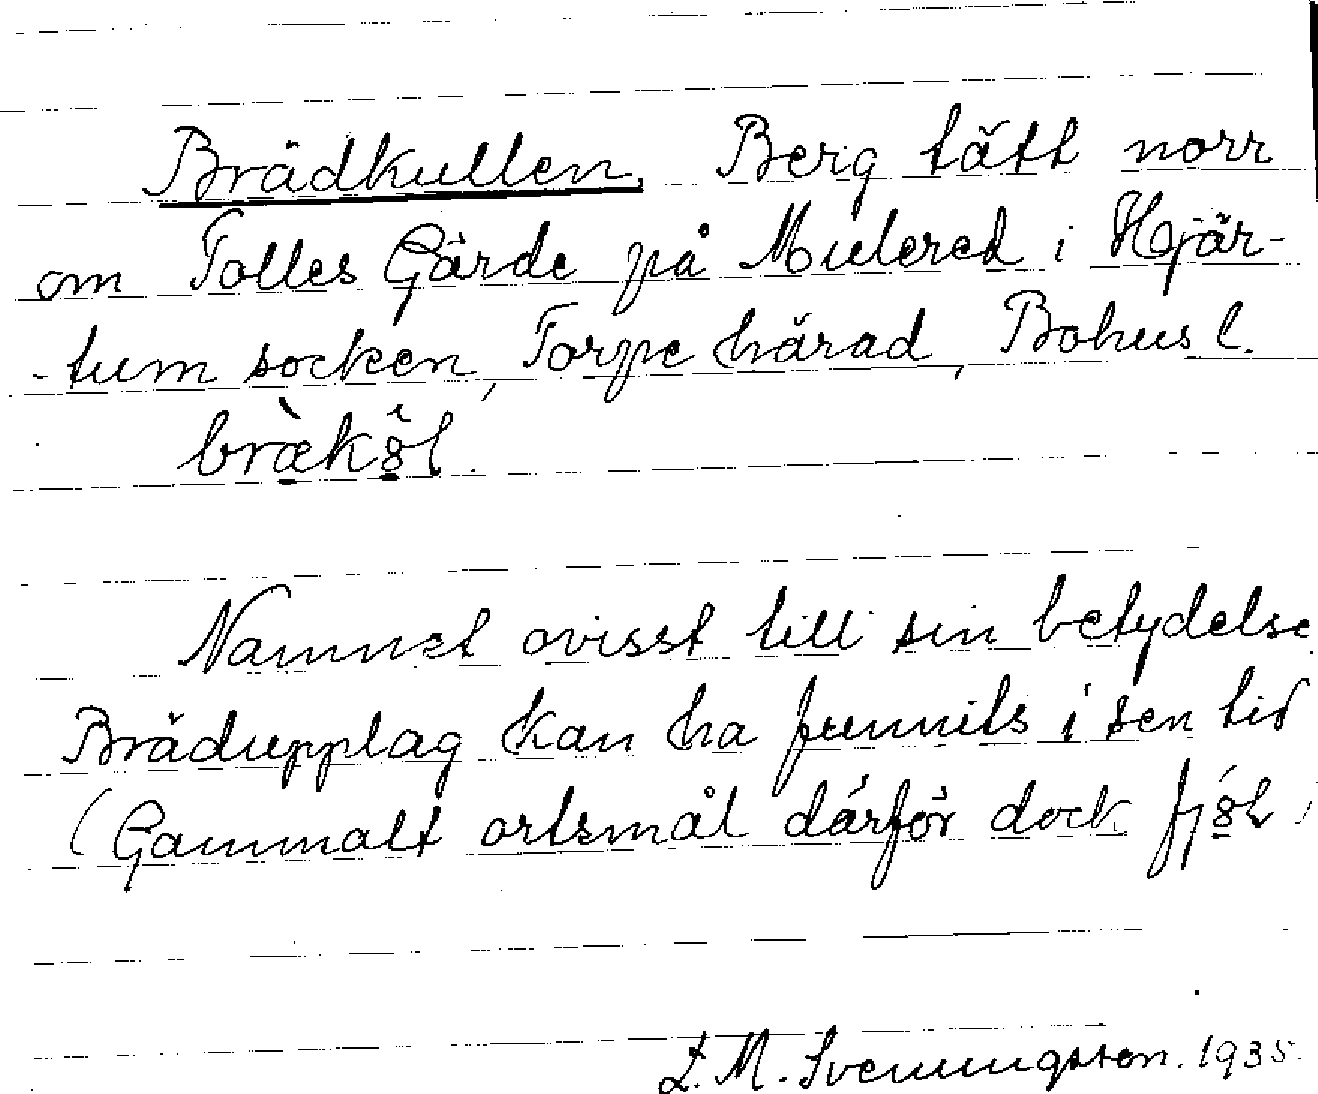 Brädkullen. Berg tätt norr
om Tolles Gärde på Mulered i Hjär-
-tum socken, Torpe härad, Bohusl.
bræ̀kŏ̤l.
Namnet ovisst till sin betydelse
Brädupplag kan ha funnits i sen tid
(Gammalt ortsmål därför dock
L. M. Svenungsson. 1935.